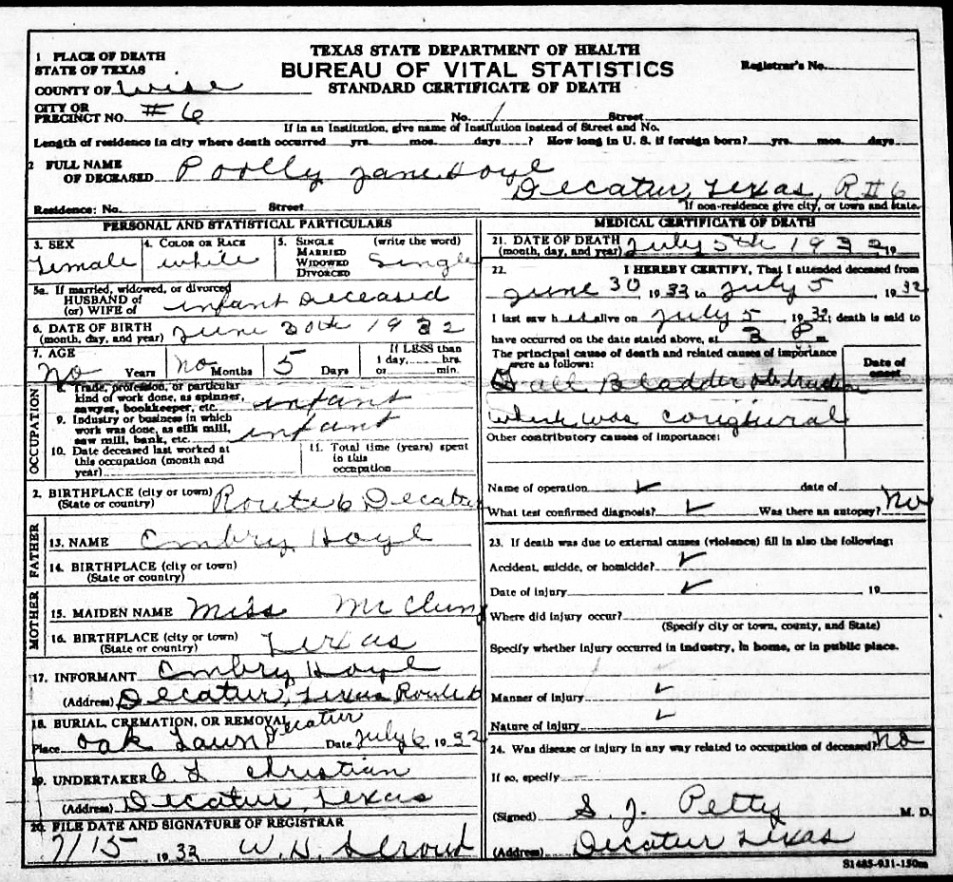 TEXAS STATE DEPARTMENT OF HEALTH
BUREAU OF VITAL STATISTICS
STANDARD CERTIFICATE OF DEATH
Registrar's No.
1 PLACE OF DEATH
STATE OF TEXAS
COUNTY OF Wise
CITY OR PRECINCT NO. #6 No. 1 Street
If in an Institution, give name of Institution instead of Street and No.
Length of residence in city where death occurred yrs. mos. days ? How long in U. S. if foreign born? yrs. mos. days
2 FULL NAME OF DECEASED Poolly Jane Hoyl
Residence: No. Street Decatur, Texas, R#6
If non-residence give city, or town and state.
PERSONAL AND STATISTICAL PARTICULARS
3. SEX Female
4. COLOR OR RACE white
5. SINGLE MARRIED WIDOWED DIVORCED (write the word) Single
5a. If married, widowed, or divorced
HUSBAND of (or) WIFE of infant Deceased
6. DATE OF BIRTH (month, day, and year) June 30th 1932
7. AGE no Years no Months 5 Days If LESS than 1 day, hrs. or min.
OCCUPATION
8. Trade, profession, or particular kind of work done, as spinner, sawyer, bookkeeper, etc. infant
9. Industry or business in which work was done, as silk mill, saw mill, bank, etc. infant
10. Date deceased last worked at this occupation (month and year)
11. Total time (years) spent in this occupation
2. BIRTHPLACE (city or town) (State or country) Route 6 Decatur
FATHER
13. NAME Embry Hoyl
14. BIRTHPLACE (city or town) (State or country)
MOTHER
15. MAIDEN NAME Miss McClung
16. BIRTHPLACE (city or town) (State or country) Texas
17. INFORMANT Embry Hoyl
(Address) Decatur, Texas Route 6
18. BURIAL, CREMATION, OR REMOVAL
Place Oak Lawn Decatur Date July 6 1932
19. UNDERTAKER C L Christian
(Address) Decatur, Texas
20. FILE DATE AND SIGNATURE OF REGISTRAR
7/15 1932 W. H.
MEDICAL CERTIFICATE OF DEATH
21. DATE OF DEATH (month, day, and year) July 5th 1932 19
22. I HEREBY CERTIFY, That I attended deceased from
June 30 1932 to July 5 1932
I last saw h is alive on July 5 1932; death is said to
have occurred on the date stated above, at 3 P m
The principal cause of death and related causes of importance were as follows:
Date of onset
Gall Bladder obstruction
which was
Other contributory causes of importance:
Name of operation ✓ date of
What test confirmed diagnosis? ✓ Was there an autopsy? No
23. If death was due to external causes (violence) fill in also the following:
Accident, suicide, or homicide? ✓
Date of injury ✓ 19
Where did injury occur?
(Specify city or town, county, and State)
Specify whether injury occurred in industry, in home, or in public place.
Manner of injury ✓
Nature of injury ✓
24. Was disease or injury in any way related to occupation of deceased? no
If so, specify
(Signed) S. J. Petty M. D.
(Address) Decatur Texas
S1485-931-150m